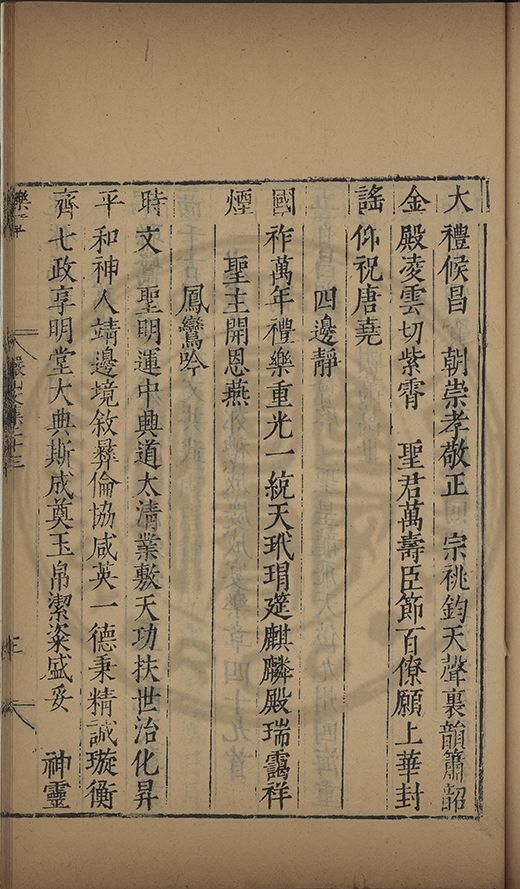 大禮候昌　朝崇孝敬正　宗祧鈞天聲裏韻簫韶
金殿凌雲切紫霄　聖君萬壽臣節百僚願上華封
謠仰祝唐堯
四邊靜
國祚萬年禮樂重光一統天玳瑁筵麒麟殿瑞靄祥
煙　聖主開恩燕
鳳鸞吟
時文　聖明運中興道太清業敷天功扶世治化昇
平和神人靖邊境敘彝倫協咸英一德秉精誠璇衡
齊七政享明堂大典斯成奠玉帛潔粢盛妥　神靈